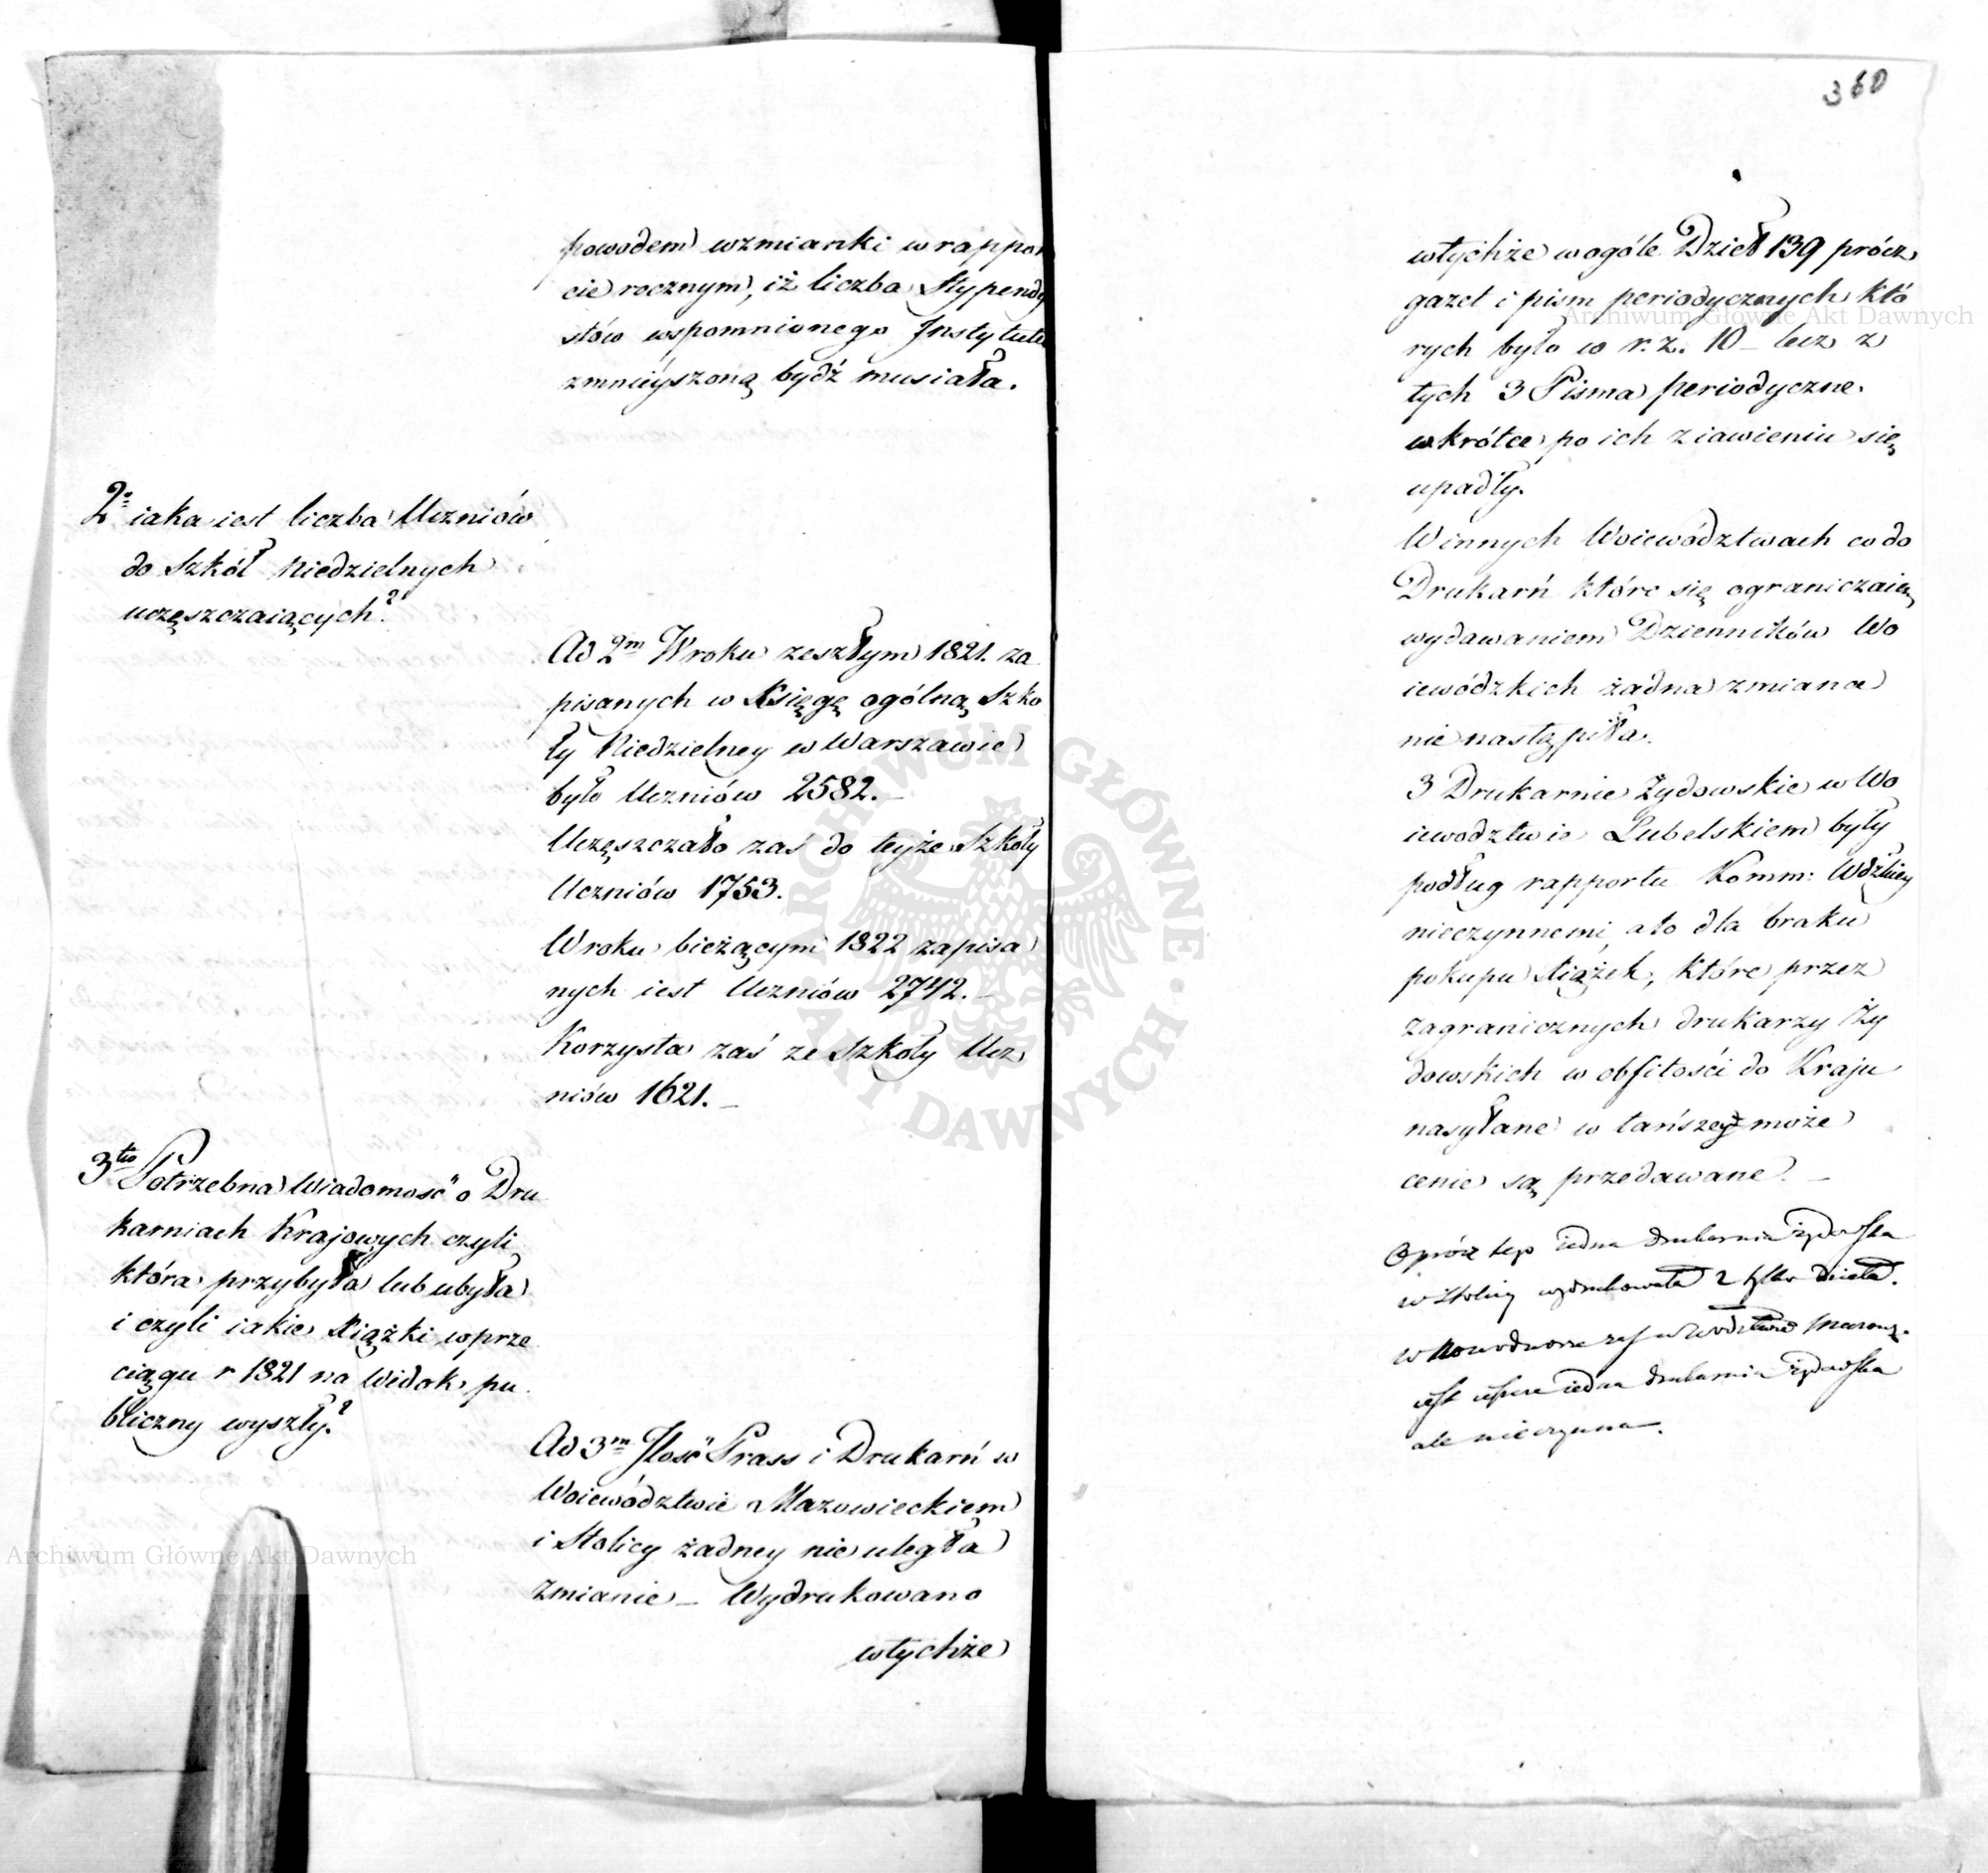 powodem wzmianki w rappor
cie rocznym, iż liczba Stypendy
stów wspomnionego Instytutu
zmnieyszoną bydź musiała.
2o iaka iest liczba Uczniów
do Szkół Niedzielnych
uczęszczaiących?
Ad 2m W roku zeszłym 1821. za
pisanych w Księgę ogólną Szko
ły Niedzielney w Warszawie
było Uczniów 2582. _
Uczęszczało zaś do teyże Szkoły
Uczniów 1753.
W roku bieżącym 1822 zapisa
nych iest Uczniów 2742. _
Korzysta zaś ze Szkoły Ucz
niów 1621. _
3tio Potrzebna Wiadomość o Dru
karniach Krajowych czyli
która przybyła lub ubyła
i czyli iakie Xiążki w prze
ciągu r 1821 na Widok pu
bliczny wyszły?
Ad 3m Ilość Prass i Drukarń w
Woiewództwie Mazowieckiem
i Stolicy żadney nie uległa
zmianie _ Wydrukowano
w tychże
360
w tychże w ogóle Dzieł 139 prócz
gazet i pism periodycznych któ
rych było w r. z. 10 _ lecz z
tych 3 Pisma periodyczne
wkrótce po ich ziawieniu się
upadły.
W innych Woiewództwach co do
Drukarń które się ograniczaią
wydawaniem Dzienników Wo
iewódzkich żadna zmiana
nie nastąpiła.
3 Drukarnie Żydowskie w Wo
iewodztwie Lubelskiem były
podług rapportu Komm: Wdzkiey
nieczynnemi, a to dla braku
pokupu Xiążek, które przez
zagranicznych drukarzy Ży
dowskich w obfitości do Kraju
nasyłane w tańszey może
cenie są przedawane. _
Oprócz tego iedna drukarnia żydowska
w Stolicy wydrukowała 2 tylko dzieła.
w Nowodworze zaś w Wodztwie Mazow:
iest ieszcze iedna drukarnia żydowska
ale nieczynna.
Archiwum Główne Akt Dawnych
Archiwum Główne Akt Dawnych
ARCHIWUM GŁÓWNE · AKT DAWNYCH ·